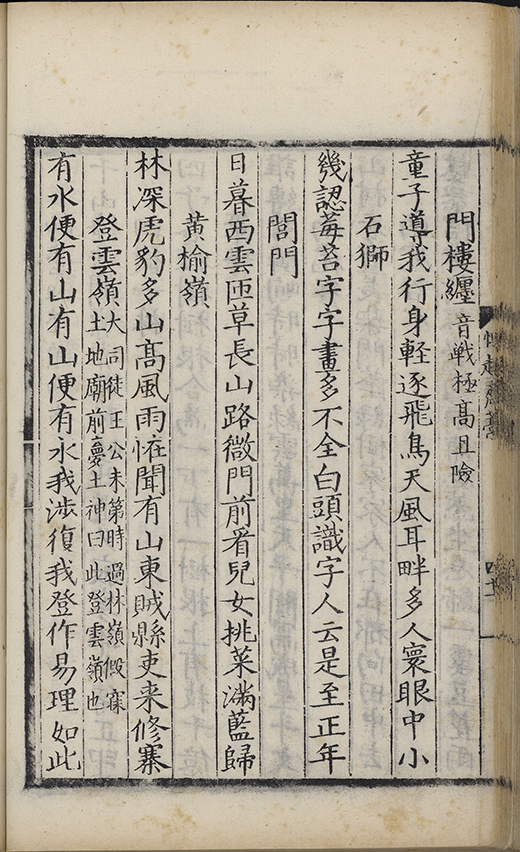 門樓纏音戦極高且險
童子導我行身軽逐飛鳥天風耳畔多人寰眼中小
石獅
幾認莓苔字字畫多不全白頭識字人云是至正年
閭門
日暮西雲匝草長山路微門前看兒女挑菜滿藍歸
黄榆嶺
林深虎豹多山髙風雨恠聞有山東賊縣吏来修寨
登雲嶺大司徒王公未第時過林嶺假寐
土地廟前夣土神曰此登雲嶺也
有水便有山有山便有水我涉復我登作易理如此